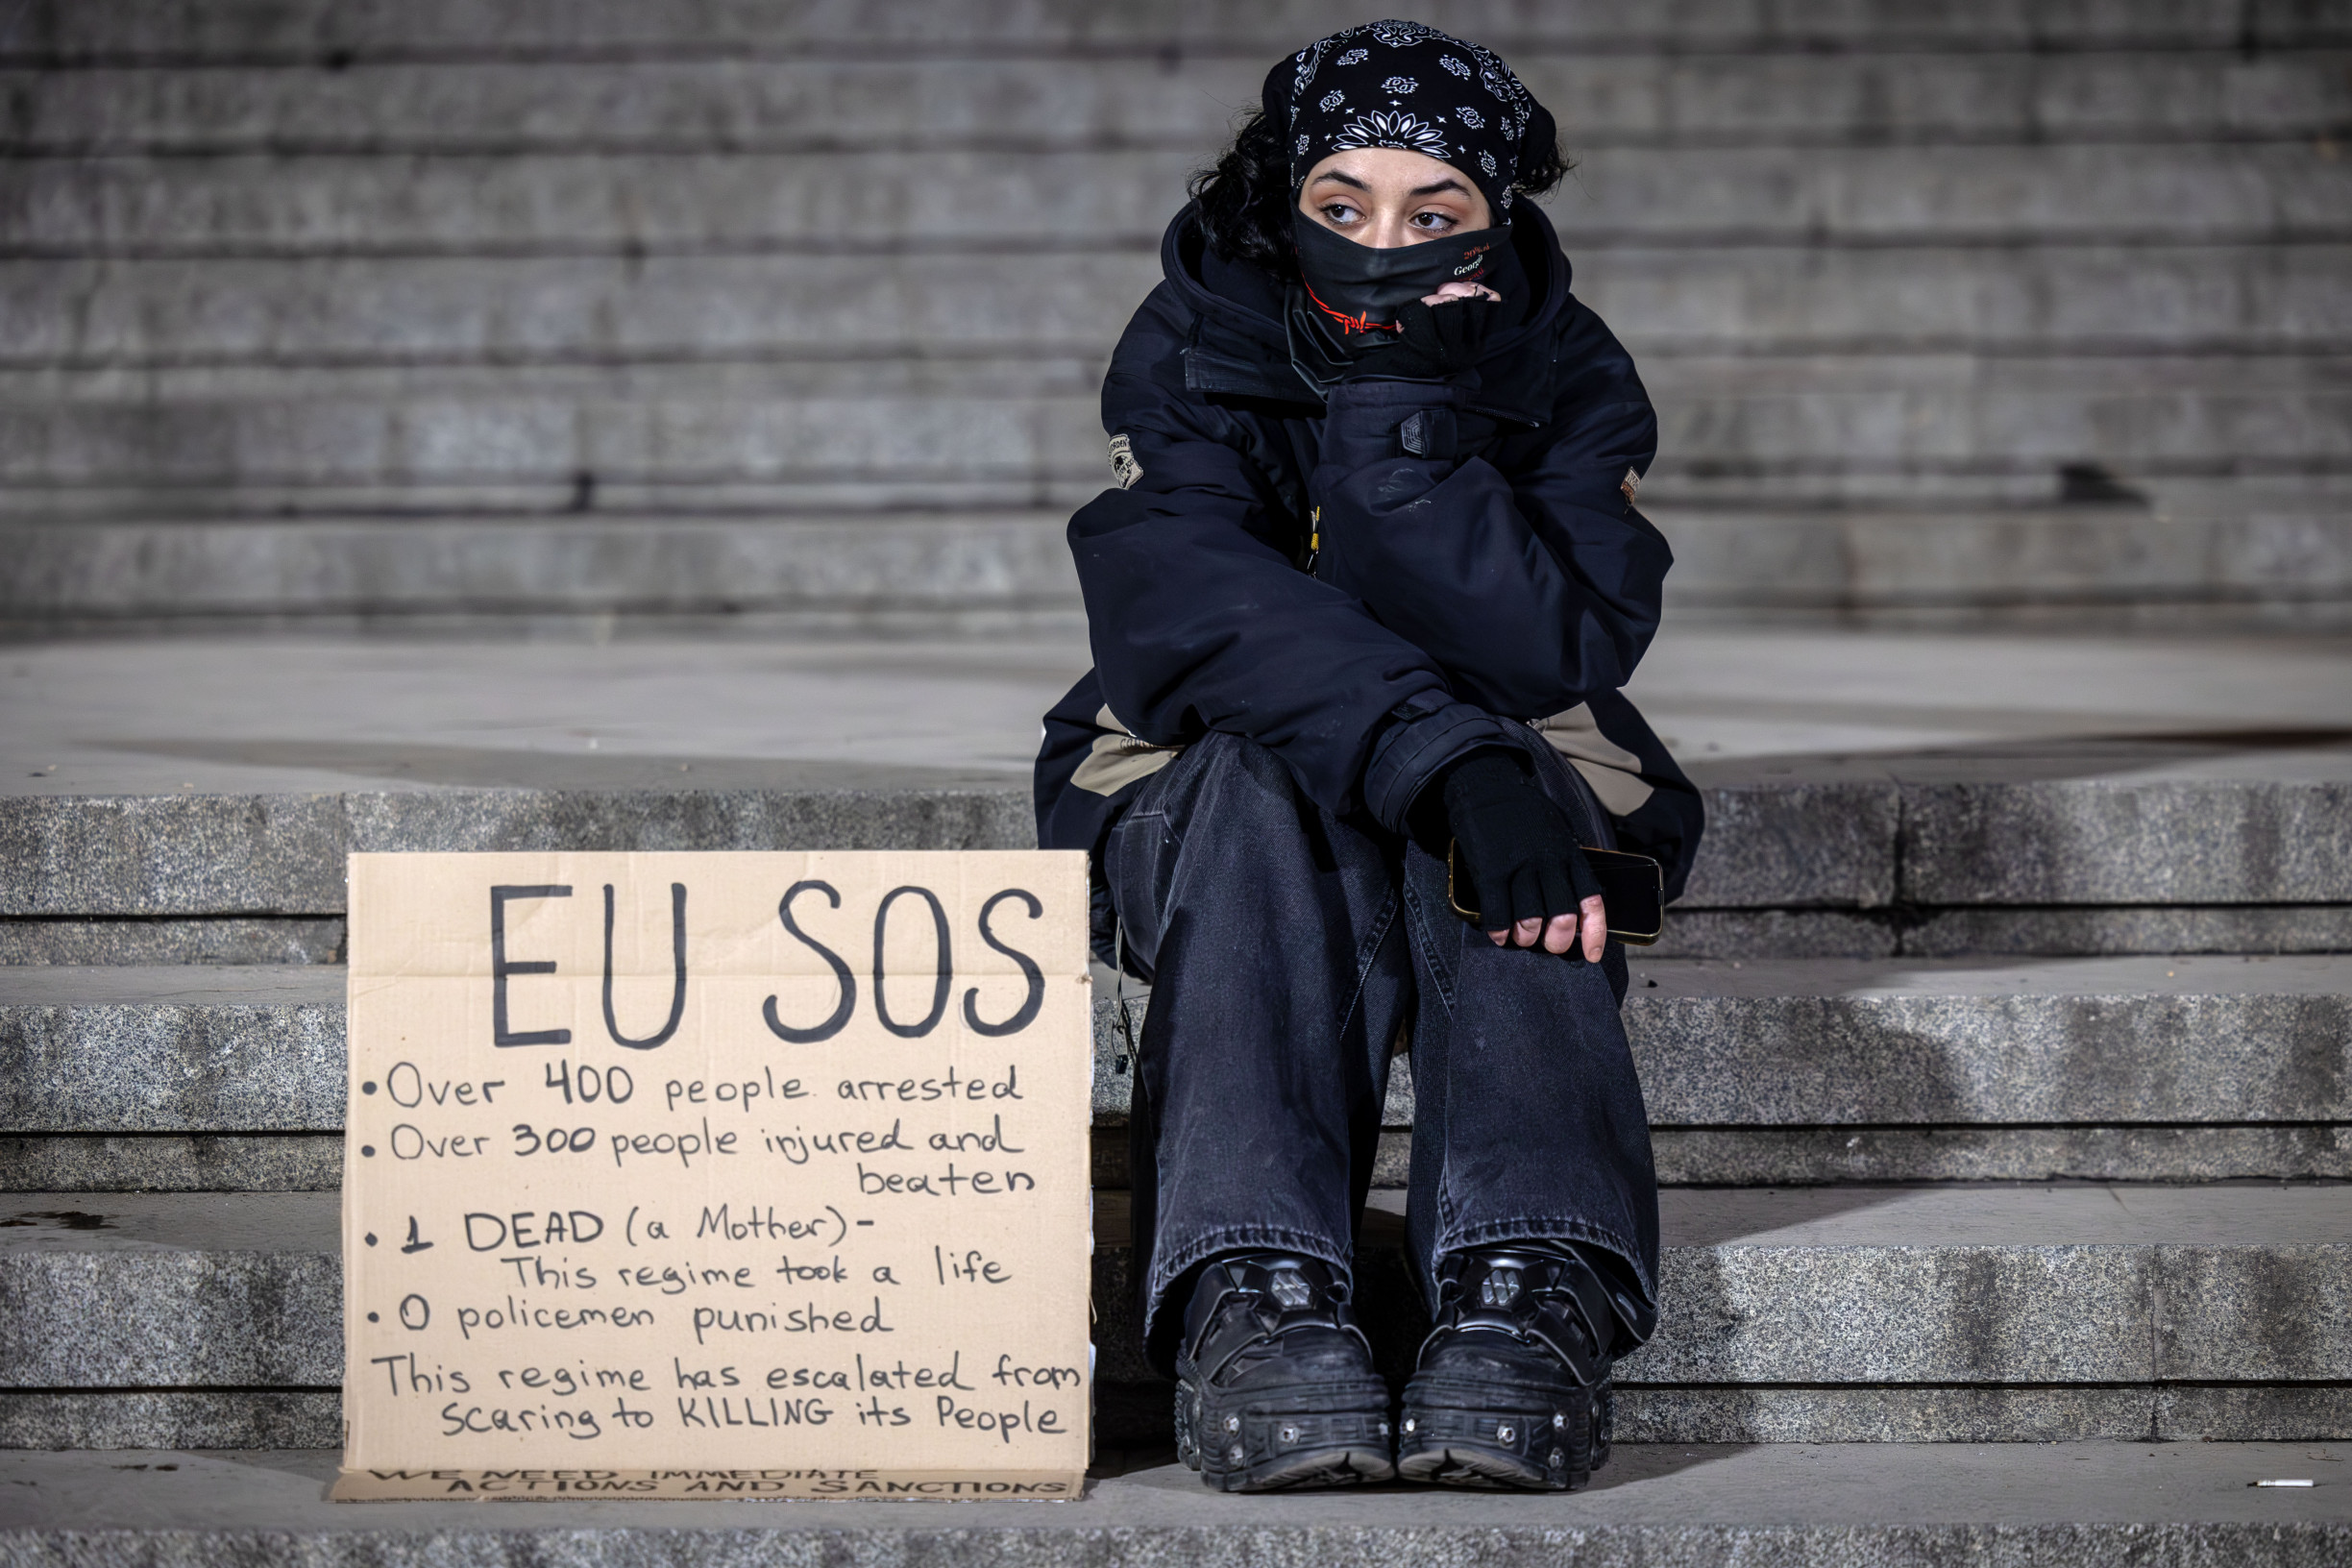 20% of
Georgia
EU SOS
• Over 400 people arrested
• Over 300 people injured and
beaten
• 1 DEAD (a Mother) -
This regime took a life
• 0 policemen punished
This regime has escalated from
scaring to KILLING its People
WE NEED IMMEDIATE
ACTIONS AND SANCTIONS